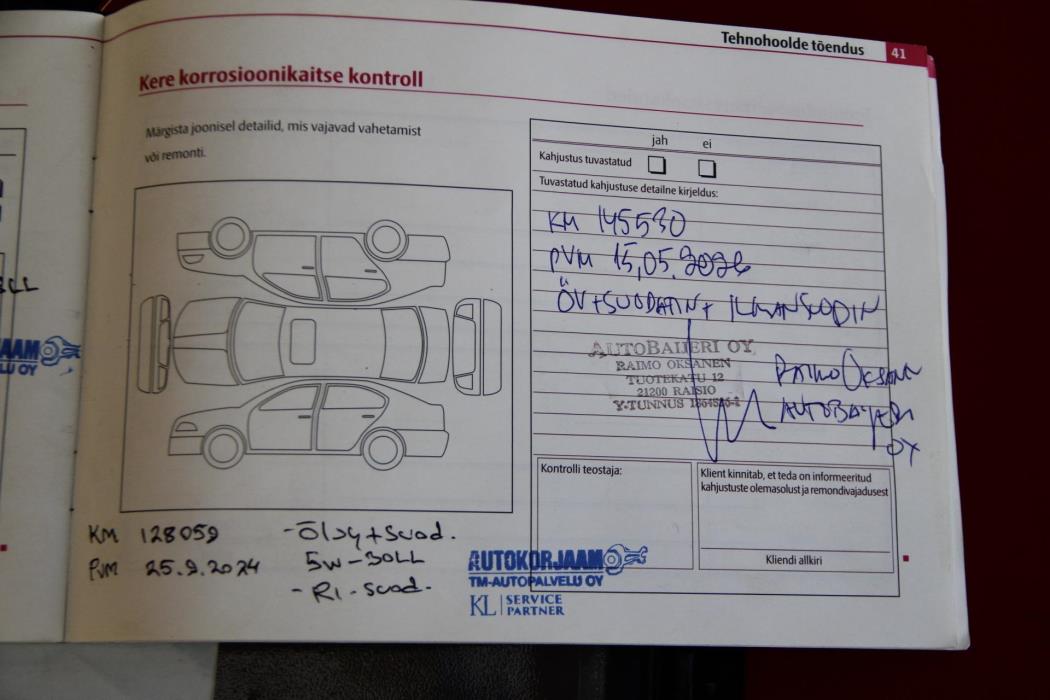 Tehnohoolde tõendus 41
Kere korrosioonikaitse kontroll
Märgista joonisel detailid, mis vajavad vahetamist
või remonti.
jah ei
Kahjustus tuvastatud
Tuvastatud kahjustuse detailne kirjeldus:
KM 145530
PVM 15,05.2026
ÖV+SUODATIN+ ILMANSUODIN
AUTOBAIJERI OY
RAIMO OKSANEN
TUOTEKATU 12
21200 RAISIO
Y-TUNNUS
RAIMO OKSANEN
AUTOBAIJERI
OY
Kontrolli teostaja:
Klient kinnitab, et teda on informeeritud
kahjustuste olemasolust ja remondivajadusest
Kliendi allkiri
KM 128059 -Öljy+suod.
PVM 25.9.2024 5W-30LL
- RI-suod.
AUTOKORJAAMO
TM-AUTOPALVELU OY
KL SERVICE
PARTNER
AAM
LU OY